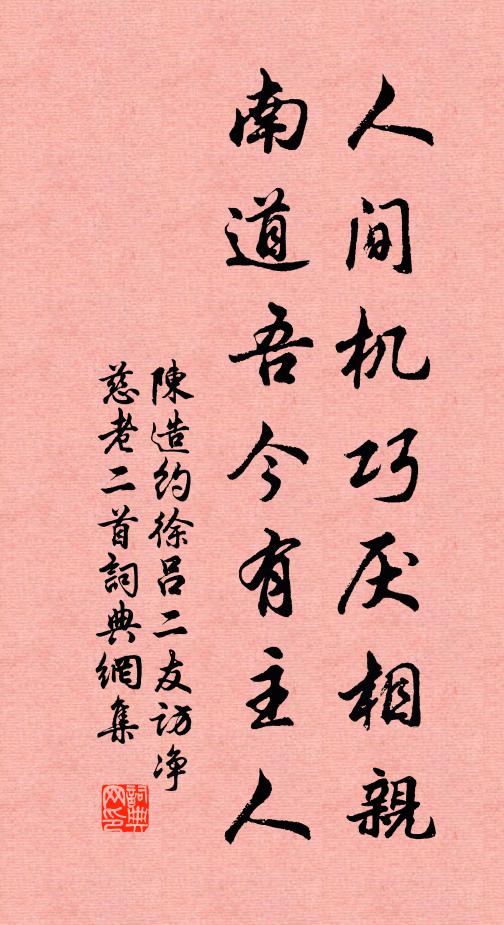 人间机巧厌相親
南道吾今有主人
陳造约徐吕二友访净
慈老二首詞典網集
詞典网印